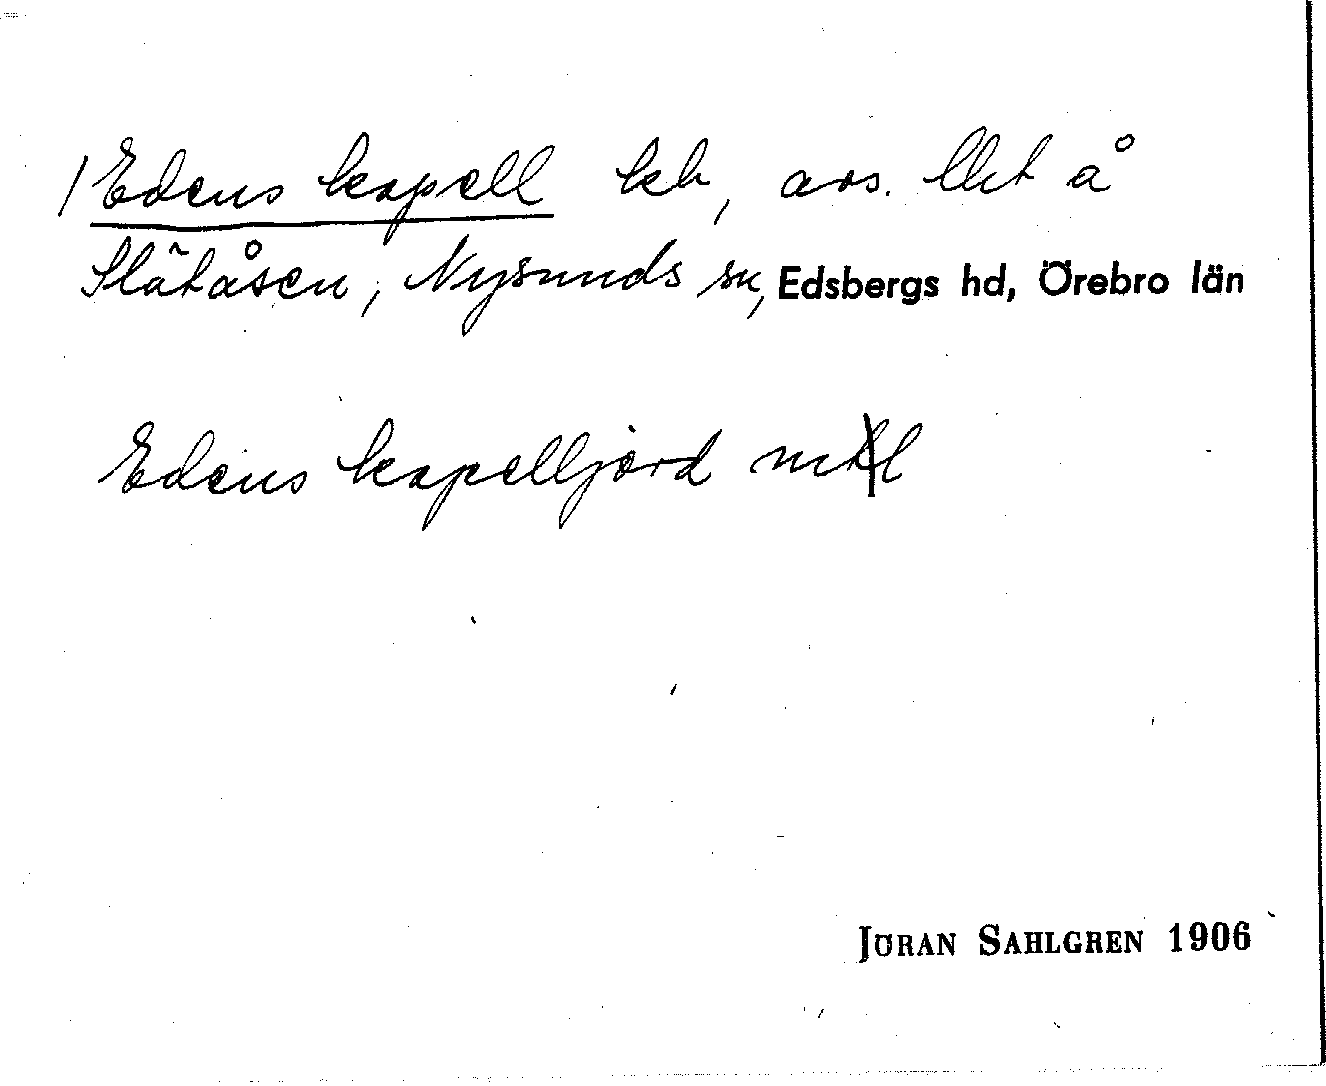 / Edens kapell kb, avs. lht å
Slätåsen, Nysunds sn, Edsbergs hd, Örebro län
Edens kapelljord mtl
JÖRAN SAHLGREN 1906